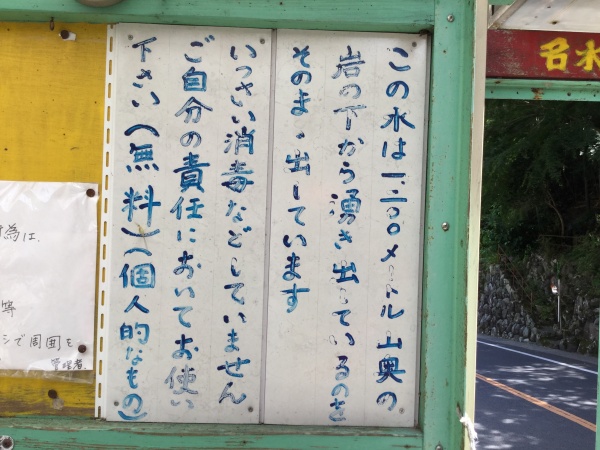 名水
この水は一二〇〇メートル山奥の
岩の下から湧き出しているのを
そのまゝ出しています
いっさい消毒などしていません
ご自分の責任においてお使い
下さい(無料)(個人的なもの)
為は、
等
シで周囲を
管理者.